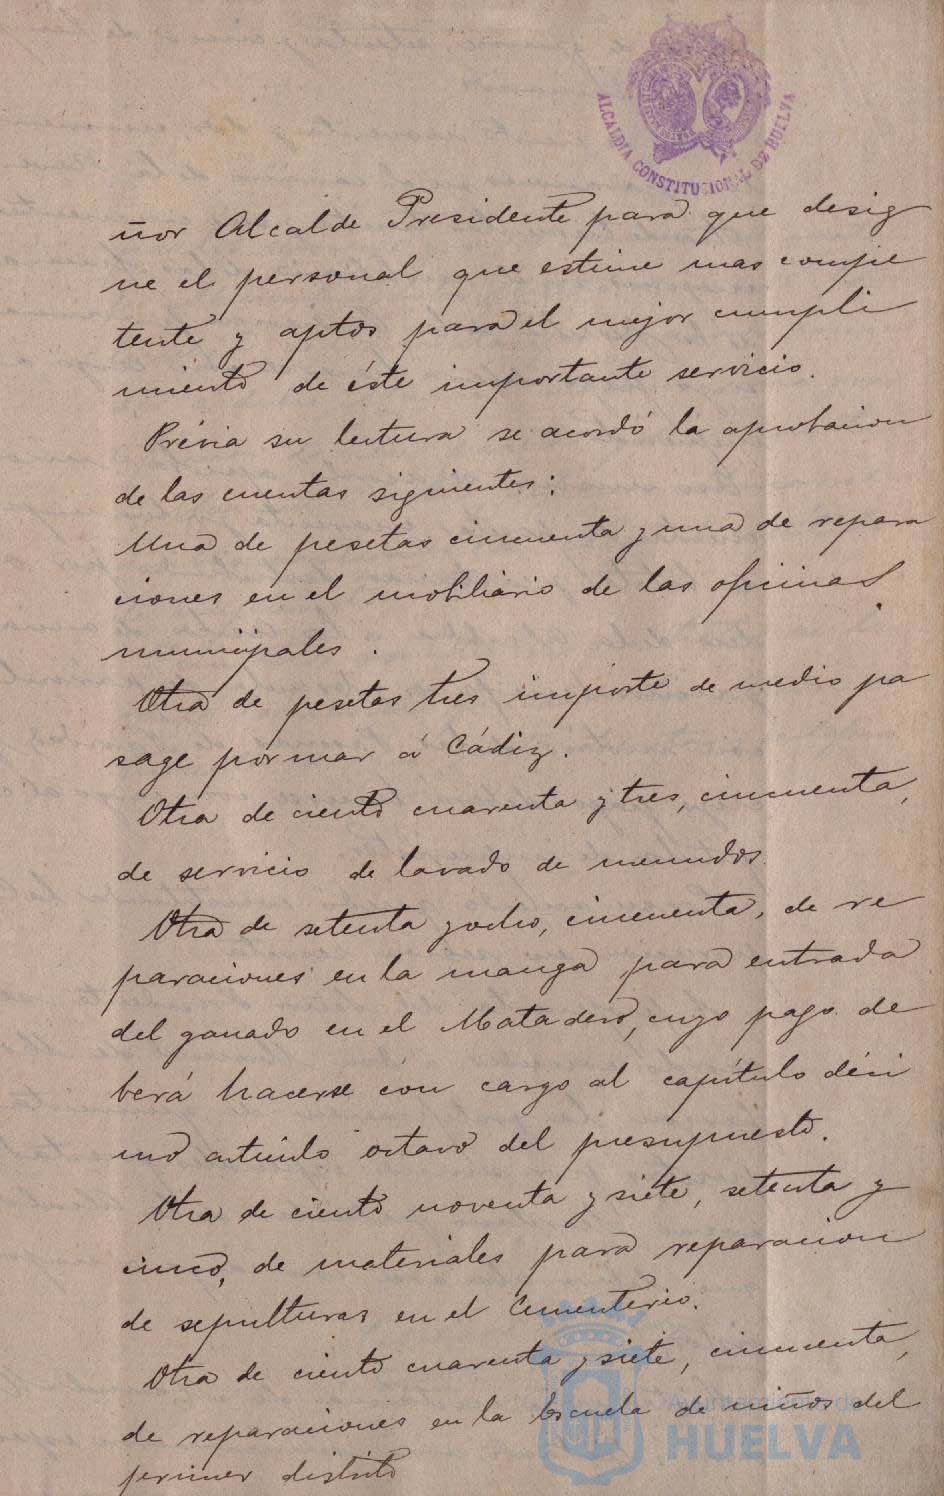 ALCALDIA CONSTITUCIONAL DE HUELVA
ñor Alcalde Presidente para que desig
ne el personal que estime mas compe
tente y aptos para el mejor cumpli
miento de éste importante servicio.
Prévia su lectura se acordó la aprobacion
de las cuentas siguientes:
Una de pesetas cincuenta y una de repara
ciones en el mobiliario de las oficinas
municipales.
Otra de pesetas tres importe de medio pa
sage por mar á Cádiz.
Otra de ciento cuarenta y tres, cincuenta,
de servicio de lavado de menudos.
Otra de setenta y ocho, cincuenta, de re
paraciones en la manga para entrada
del ganado en el Matadero, cuyo pago de
berá hacerse con cargo al capítulo déci
mo artículo octavo del presupuesto.
Otra de ciento noventa y siete, setenta y
cinco, de materiales para reparacion
de sepulturas en el Cementerio.
Otra de ciento cuarenta y siete, cincuenta,
de reparaciones en la Escuela de niños del
primer distrito
Ayuntamiento de
HUELVA